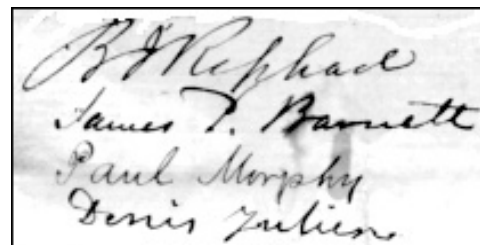 B J Raphael
James P. Barnett
Paul Morphy
Denis Julien